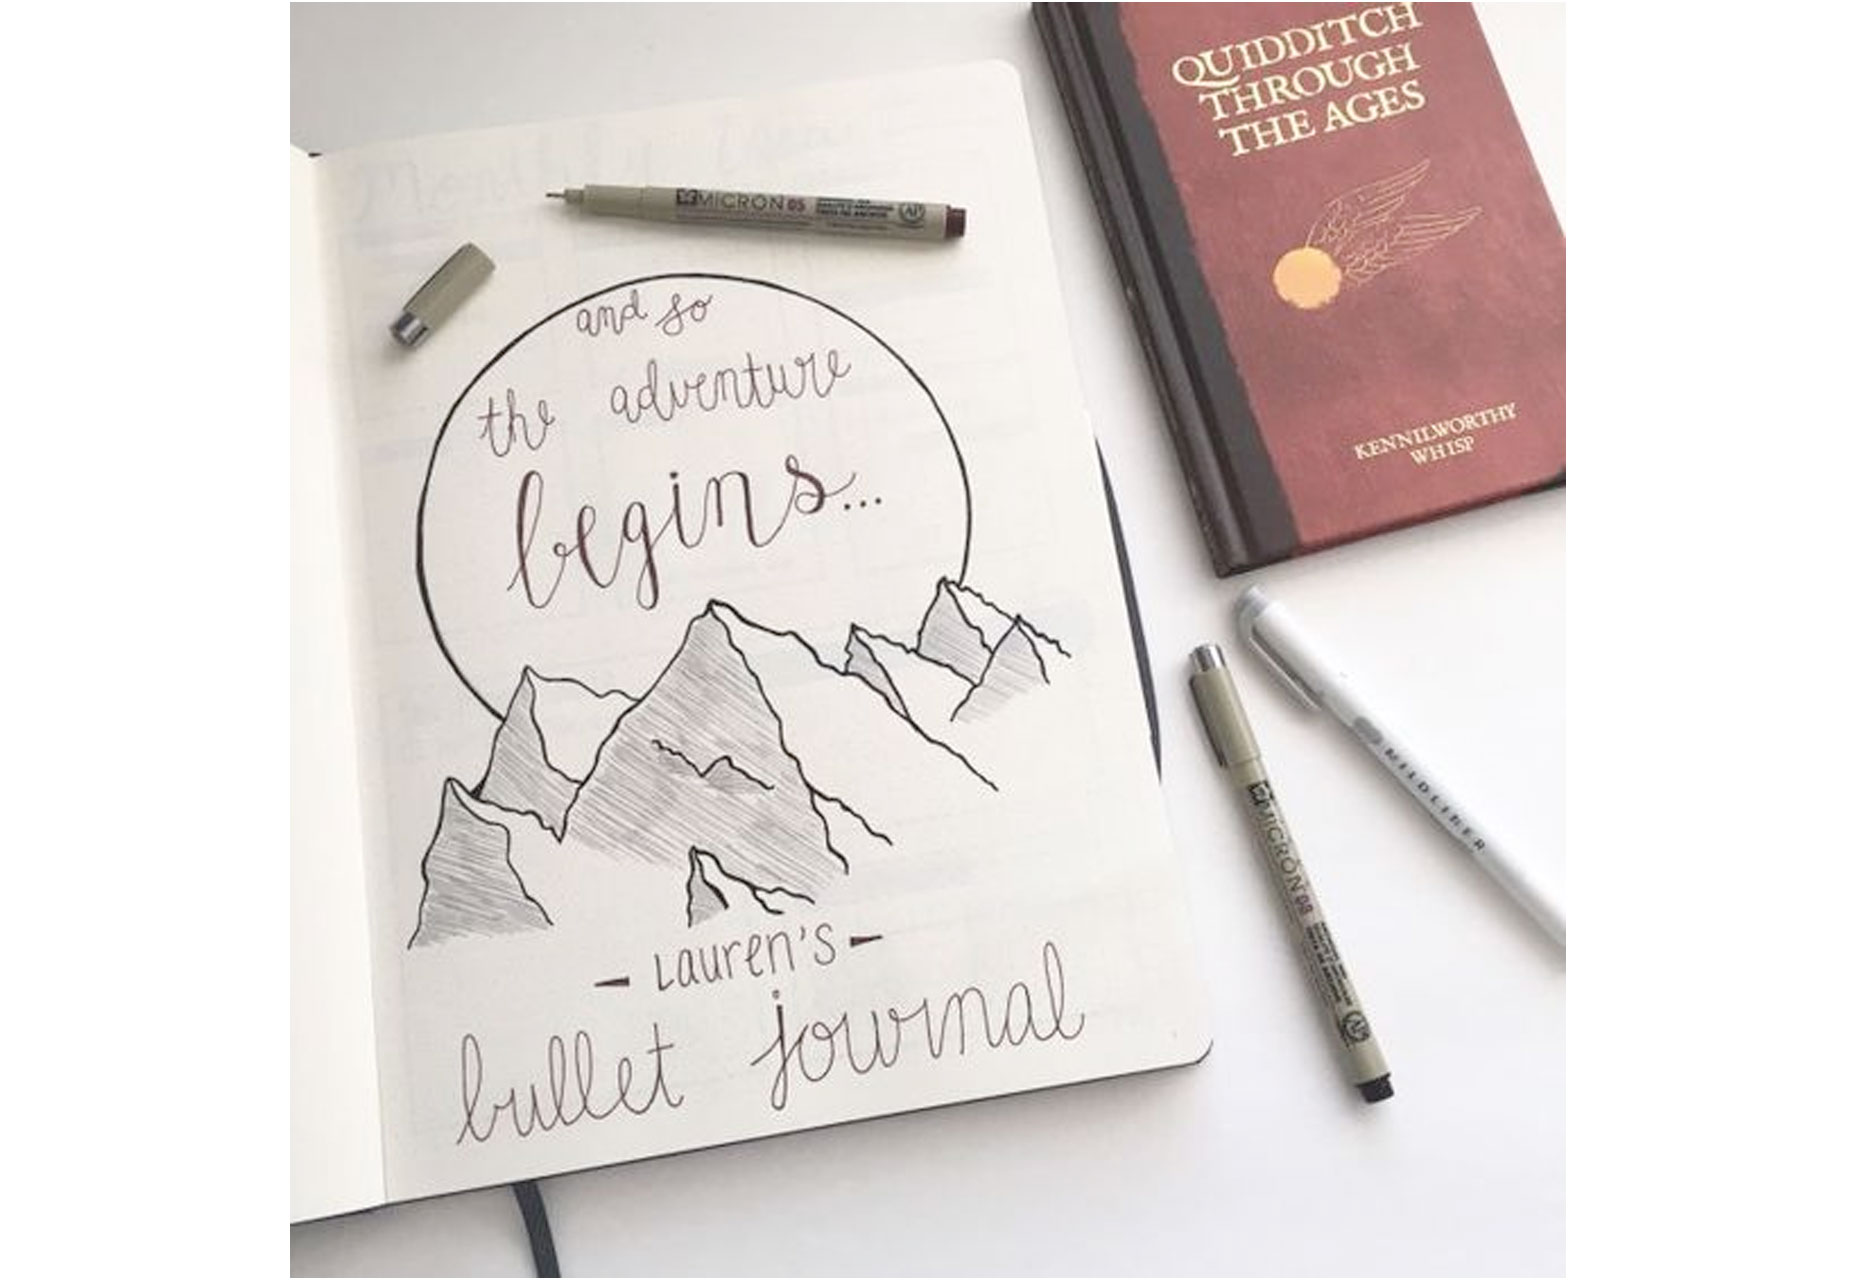 and so
the adventure
begins...
- Lauren's -
bullet journal
MICRON 05
QUIDDITCH
THROUGH
THE AGES
KENNILWORTHY
WHISP
MICRON 08
MILDLINER